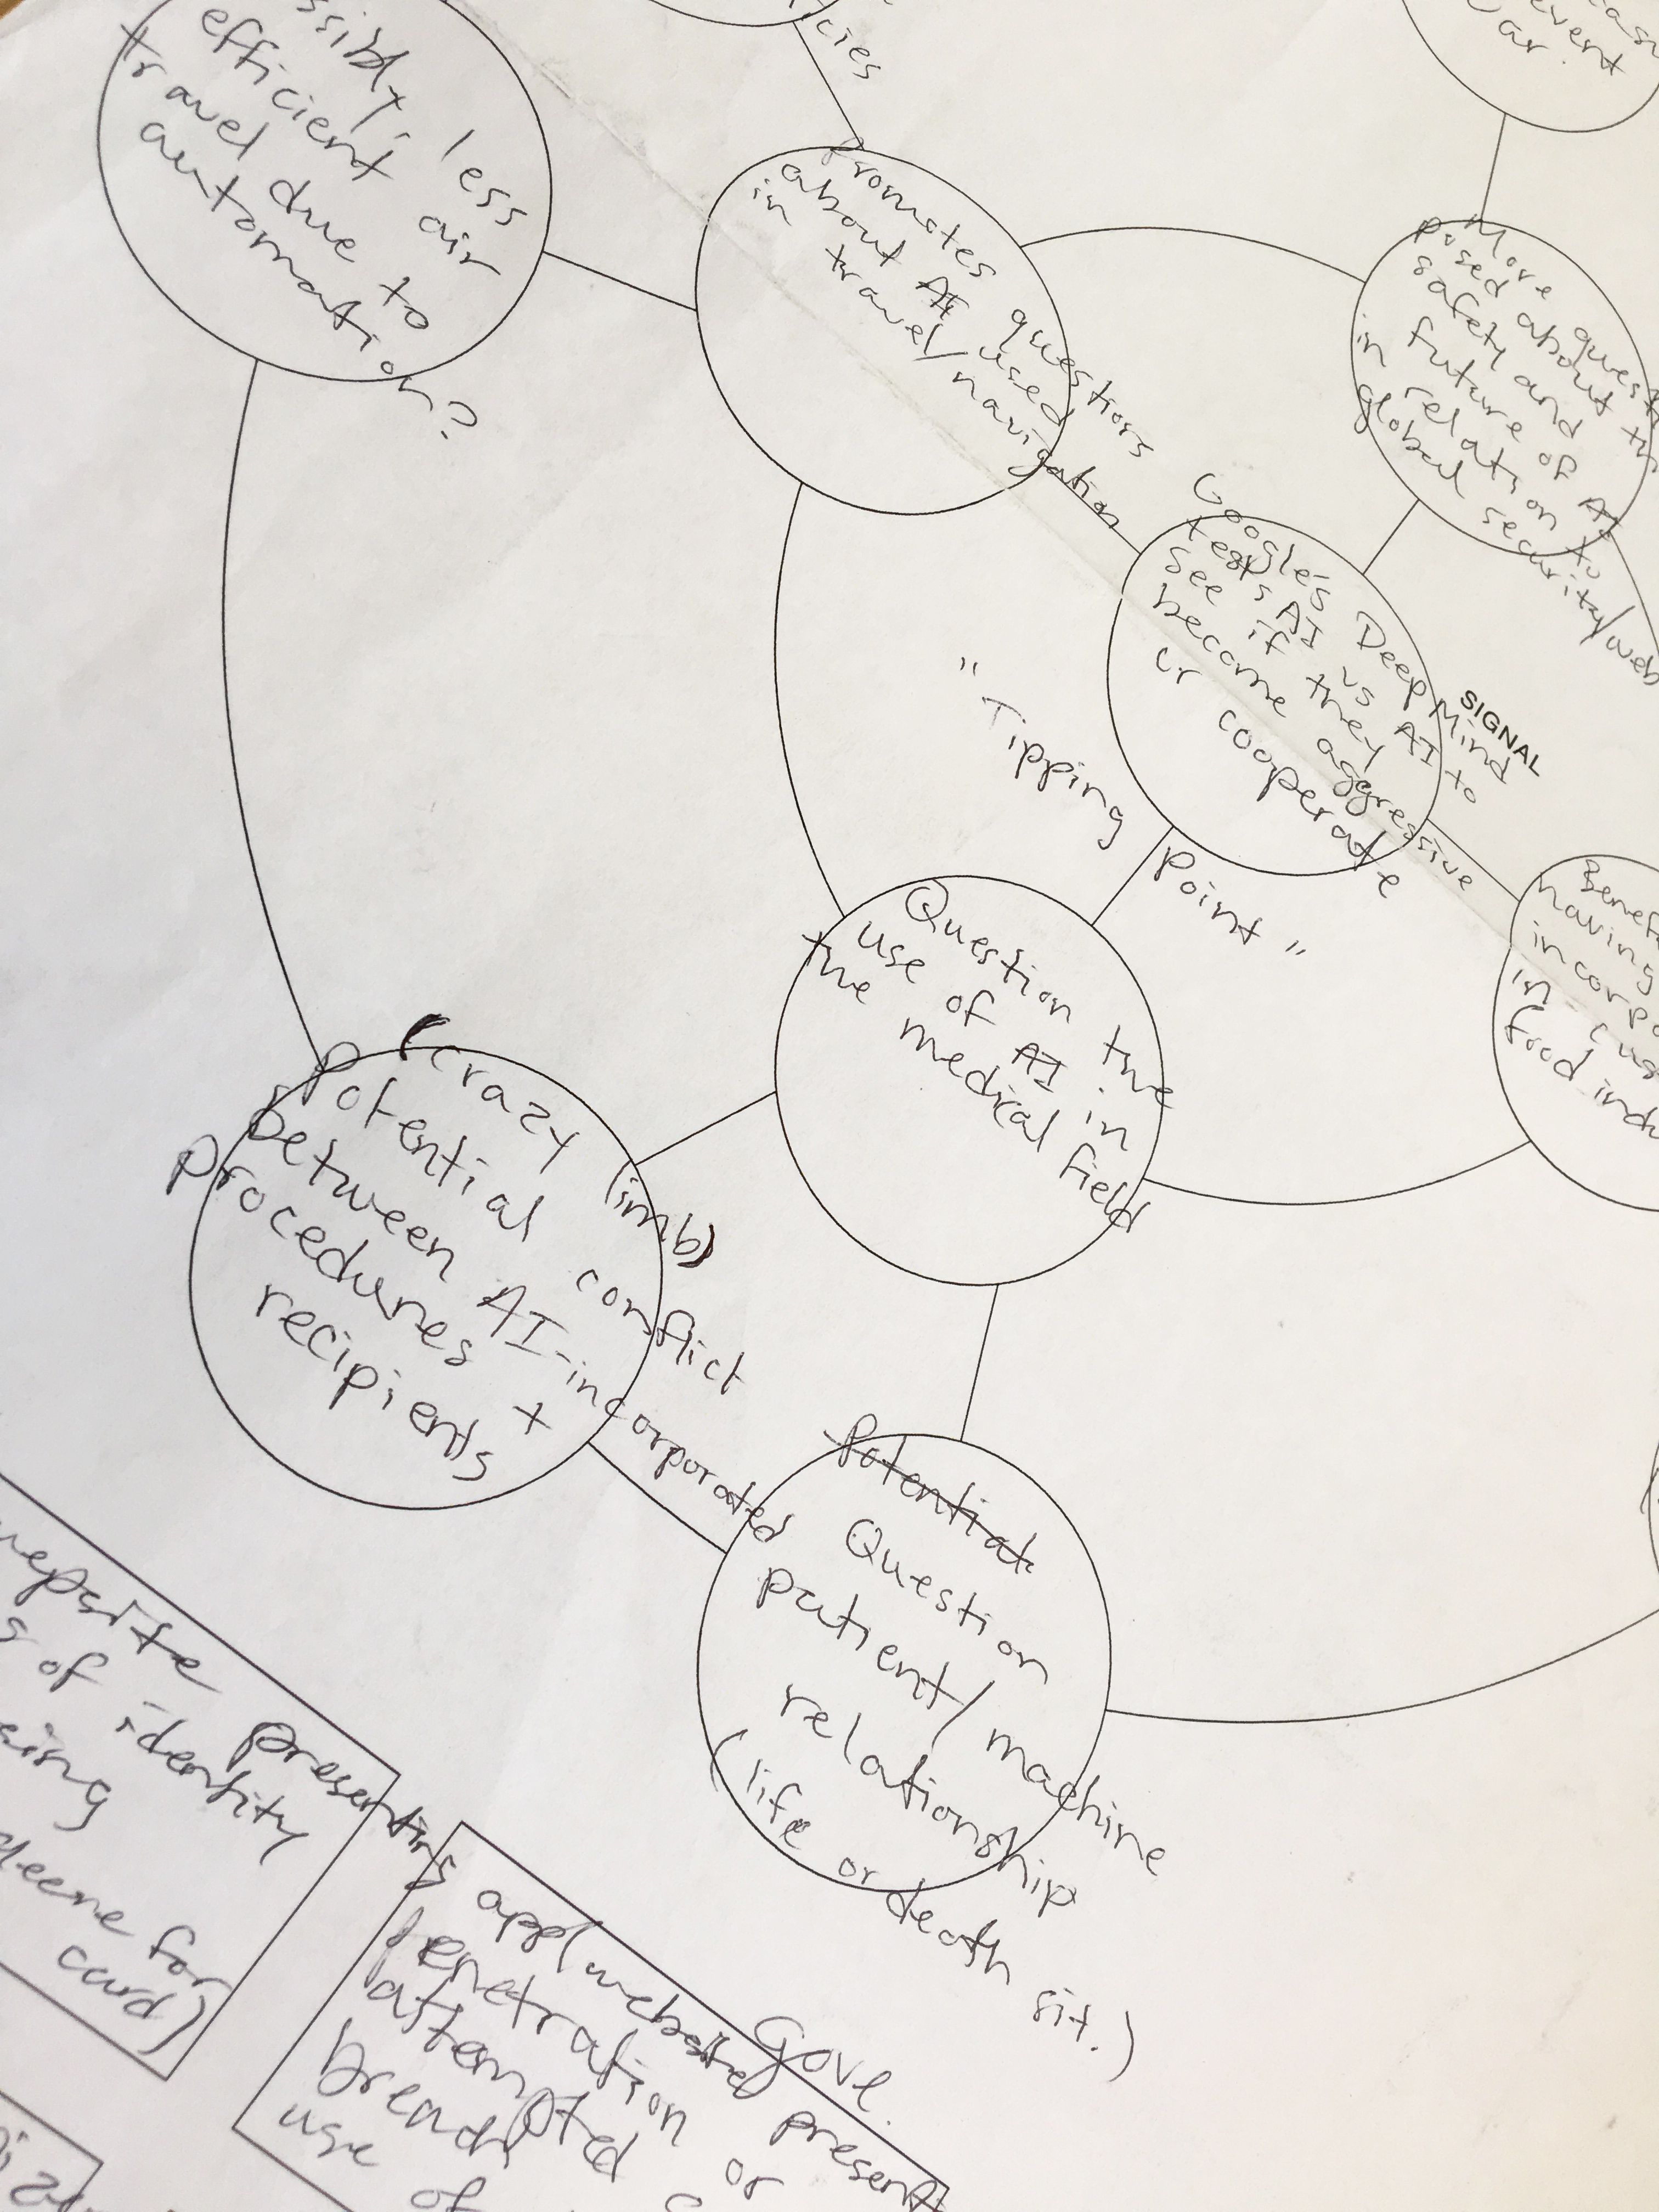 less
efficient air
travel due to
automation?
cies
event
Promotes questions
about AI used
in travel/navigation
More
posed about
safety and
future of AI
in relation to
global security/web
Google's DeepMind
tests AI vs AI to
see if they
become aggressive
or cooperate
SIGNAL
"Tipping Point"
having
in
food
Question the
use of AI in
the medical field
(crazy limb)
Potential conflict
between AI-incorporated
procedures +
recipients
Potential
Question
patient/machine
relationship
(life or death sit.)
presenting
of identity
for
card)
Gove.
app/website
penetration or
attempted
breach
use of